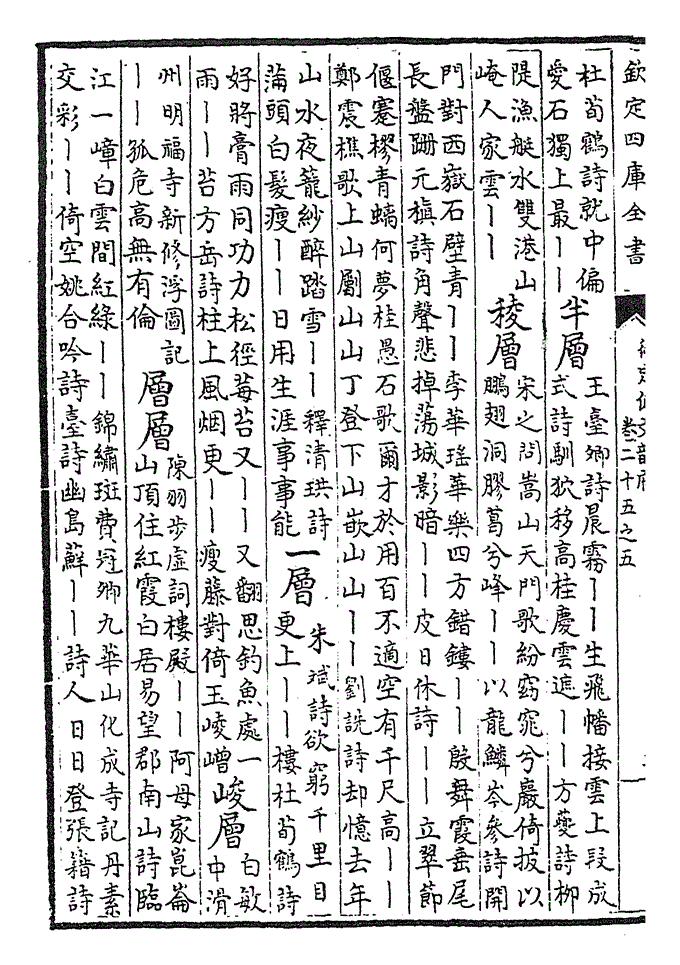 欽定四庫全書
御定佩文韻府
卷二十五之五
杜荀鶴詩就中偏
愛石獨上最丨丨
半層
王臺卿詩晨霧丨丨生飛幡接雲上段成
式詩馴狖移高桂慶雲遮丨丨方夔詩柳
隄漁艇水雙港山
崦人家雲丨丨
稜層
宋之問嵩山天門歌紛窈窕兮巖倚披以
鵬翅洞膠葛兮峰丨丨以龍鱗岑參詩開
門對西嶽石壁青丨丨李華瑤華樂四方錯鏤丨丨殷舞霞垂尾
長盤跚元稹詩角聲悲掉蕩城影暗丨丨皮日休詩丨丨立翠節
偃蹇樛青螭何夢桂愚石歌爾才於用百不適空有千尺高丨丨
鄭震樵歌上山劚山山丁登下山嵌山山丨丨劉詵詩却憶去年
山水夜籠紗醉踏雪丨丨釋清珙詩
滿頭白髮瘦丨丨日用生涯事事能
一層
朱斌詩欲窮千里目
更上丨丨樓杜荀鶴詩
好將膏雨同功力松徑莓苔又丨丨又翻思釣魚處一
雨丨丨苔方岳詩柱上風烟更丨丨瘦藤對倚玉崚嶒
峻層
白敏
中滑
州明福寺新修浮圖記
丨丨孤危高無有倫
層層
陳羽步虛詞樓殿丨丨阿母家崑崙
山頂住紅霞白居易望郡南山詩臨
江一嶂白雲間紅綠丨丨錦繡斑費冠卿九華山化成寺記丹素
交彩丨丨倚空姚合吟詩臺詩幽島蘚丨丨詩人日日登張籍詩